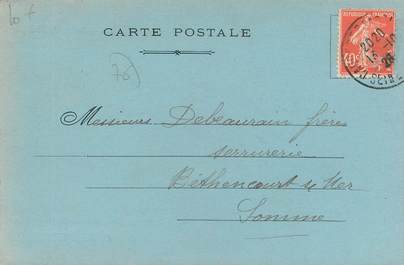 10 +
CARTE POSTALE
76
RÉPUBLIQUE FRANÇAISE
20 20
15 -10
26
SEIN
40c
Messieurs Debeaurain frères
serrurerie
Béthencourt s/ Mer
Somme